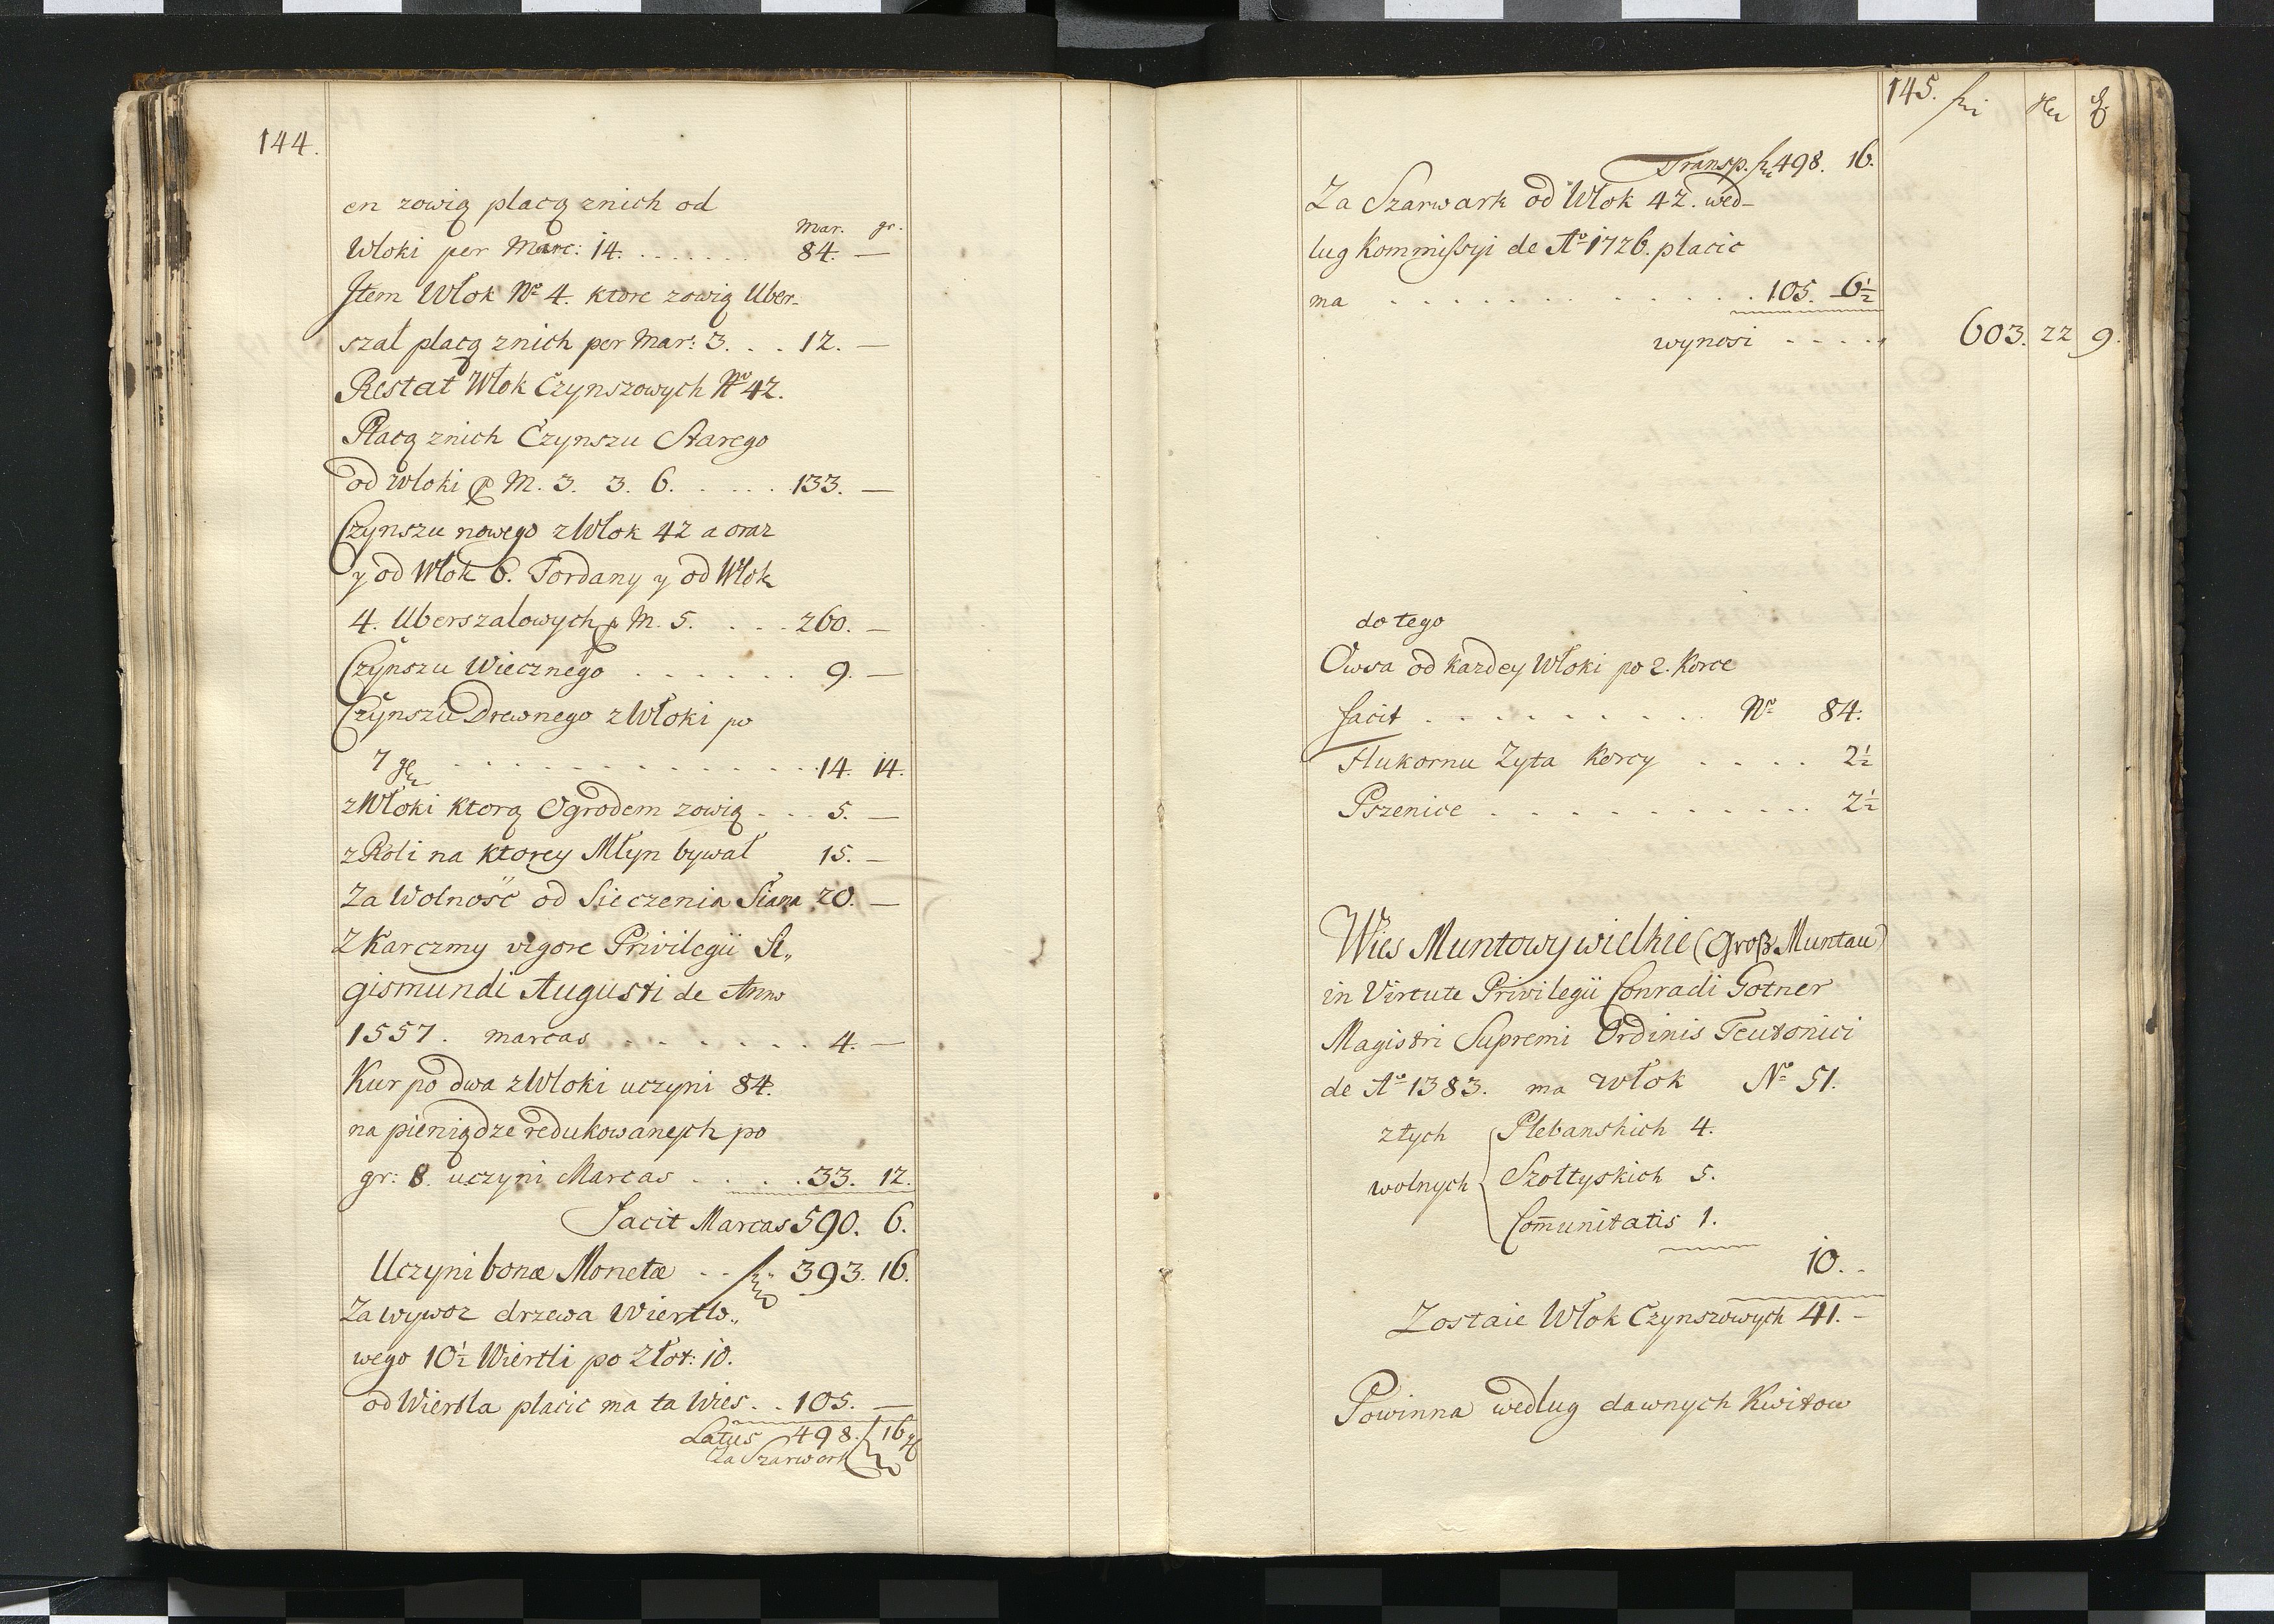 144.
en zowią placą znich od
mar. gr.
Wloki per Marc: 14. . . . . . . . 84. —
Item Wlok No 4. ktore zowią Uber-
szal placą znich per Mar: 3. . . 12. —
Restat Wlok Czynszowych No 42.
Placą znich Czynszu Starego
od wloki p M. 3. 3. 6. . . . . 133. —
Czynszu nowego z Wlok 42 a oraz
y od Wlok 6. Jordany y od Wlok
4. Uberszalowych p M. 5. . . . 260. —
Czynszu Wiecznego . . . . . . 9. —
Czynszu Drewnego z Wloki po
7 gr . . . . . . . . . . . . 14. 14.
z Wloki ktorą Ogrodem zowią . . . 5. —
z Roli na ktorey Młyn bywał 15. —
Za Wolność od Sieczenia Siana 20. —
Z Karczmy vigore Privilegii Si„
gismundi Augusti de Anno
1557. marcas . . . . . . . 4. —
Kur po dwa z Wloki uczyni 84.
na pieniądze redukowanych po
gr: 8. uczyni Marcas . . . . 33. 12.
facit Marcas 590. 6.
Uczyni bonæ Monetæ . . 393. 16.
Za wywoz drzewa Wiertlo„
wego 10½ Wiertli po Złot: 10.
od Wiertla placic ma ta Wies . . 105. —
Latus 498. 16
Za Szarwark
145.
Transp. 498. 16.
Za Szarwark od Wlok 42. wed-
lug Kommissyi de Ao 1726. placic
ma . . . . . . . . . . . . 105. 6½
wynosi . . . . . 603. 22 9.
do tego
Owsa od kazdey Wloki po 2. Korce
facit . . . . . . . . . . No 84.
Hukornu Zyta Korcy . . . . 2½
Pszenice . . . . . . . . . . . 2½
Wies Muntowy wielkie (Groß Muntau)
in Virtute Privilegii Conradi Zotner
Magistri Supremi Ordinis Teutonici
de Ao 1383. ma włok No 51.
z tych
wolnych
Plebanskich 4.
Szołtyskich 5.
Com̄unitatis 1.
10. -
Zostaie Włok Czynszowych 41. -
Powinna wedlug dawnych Kwitow